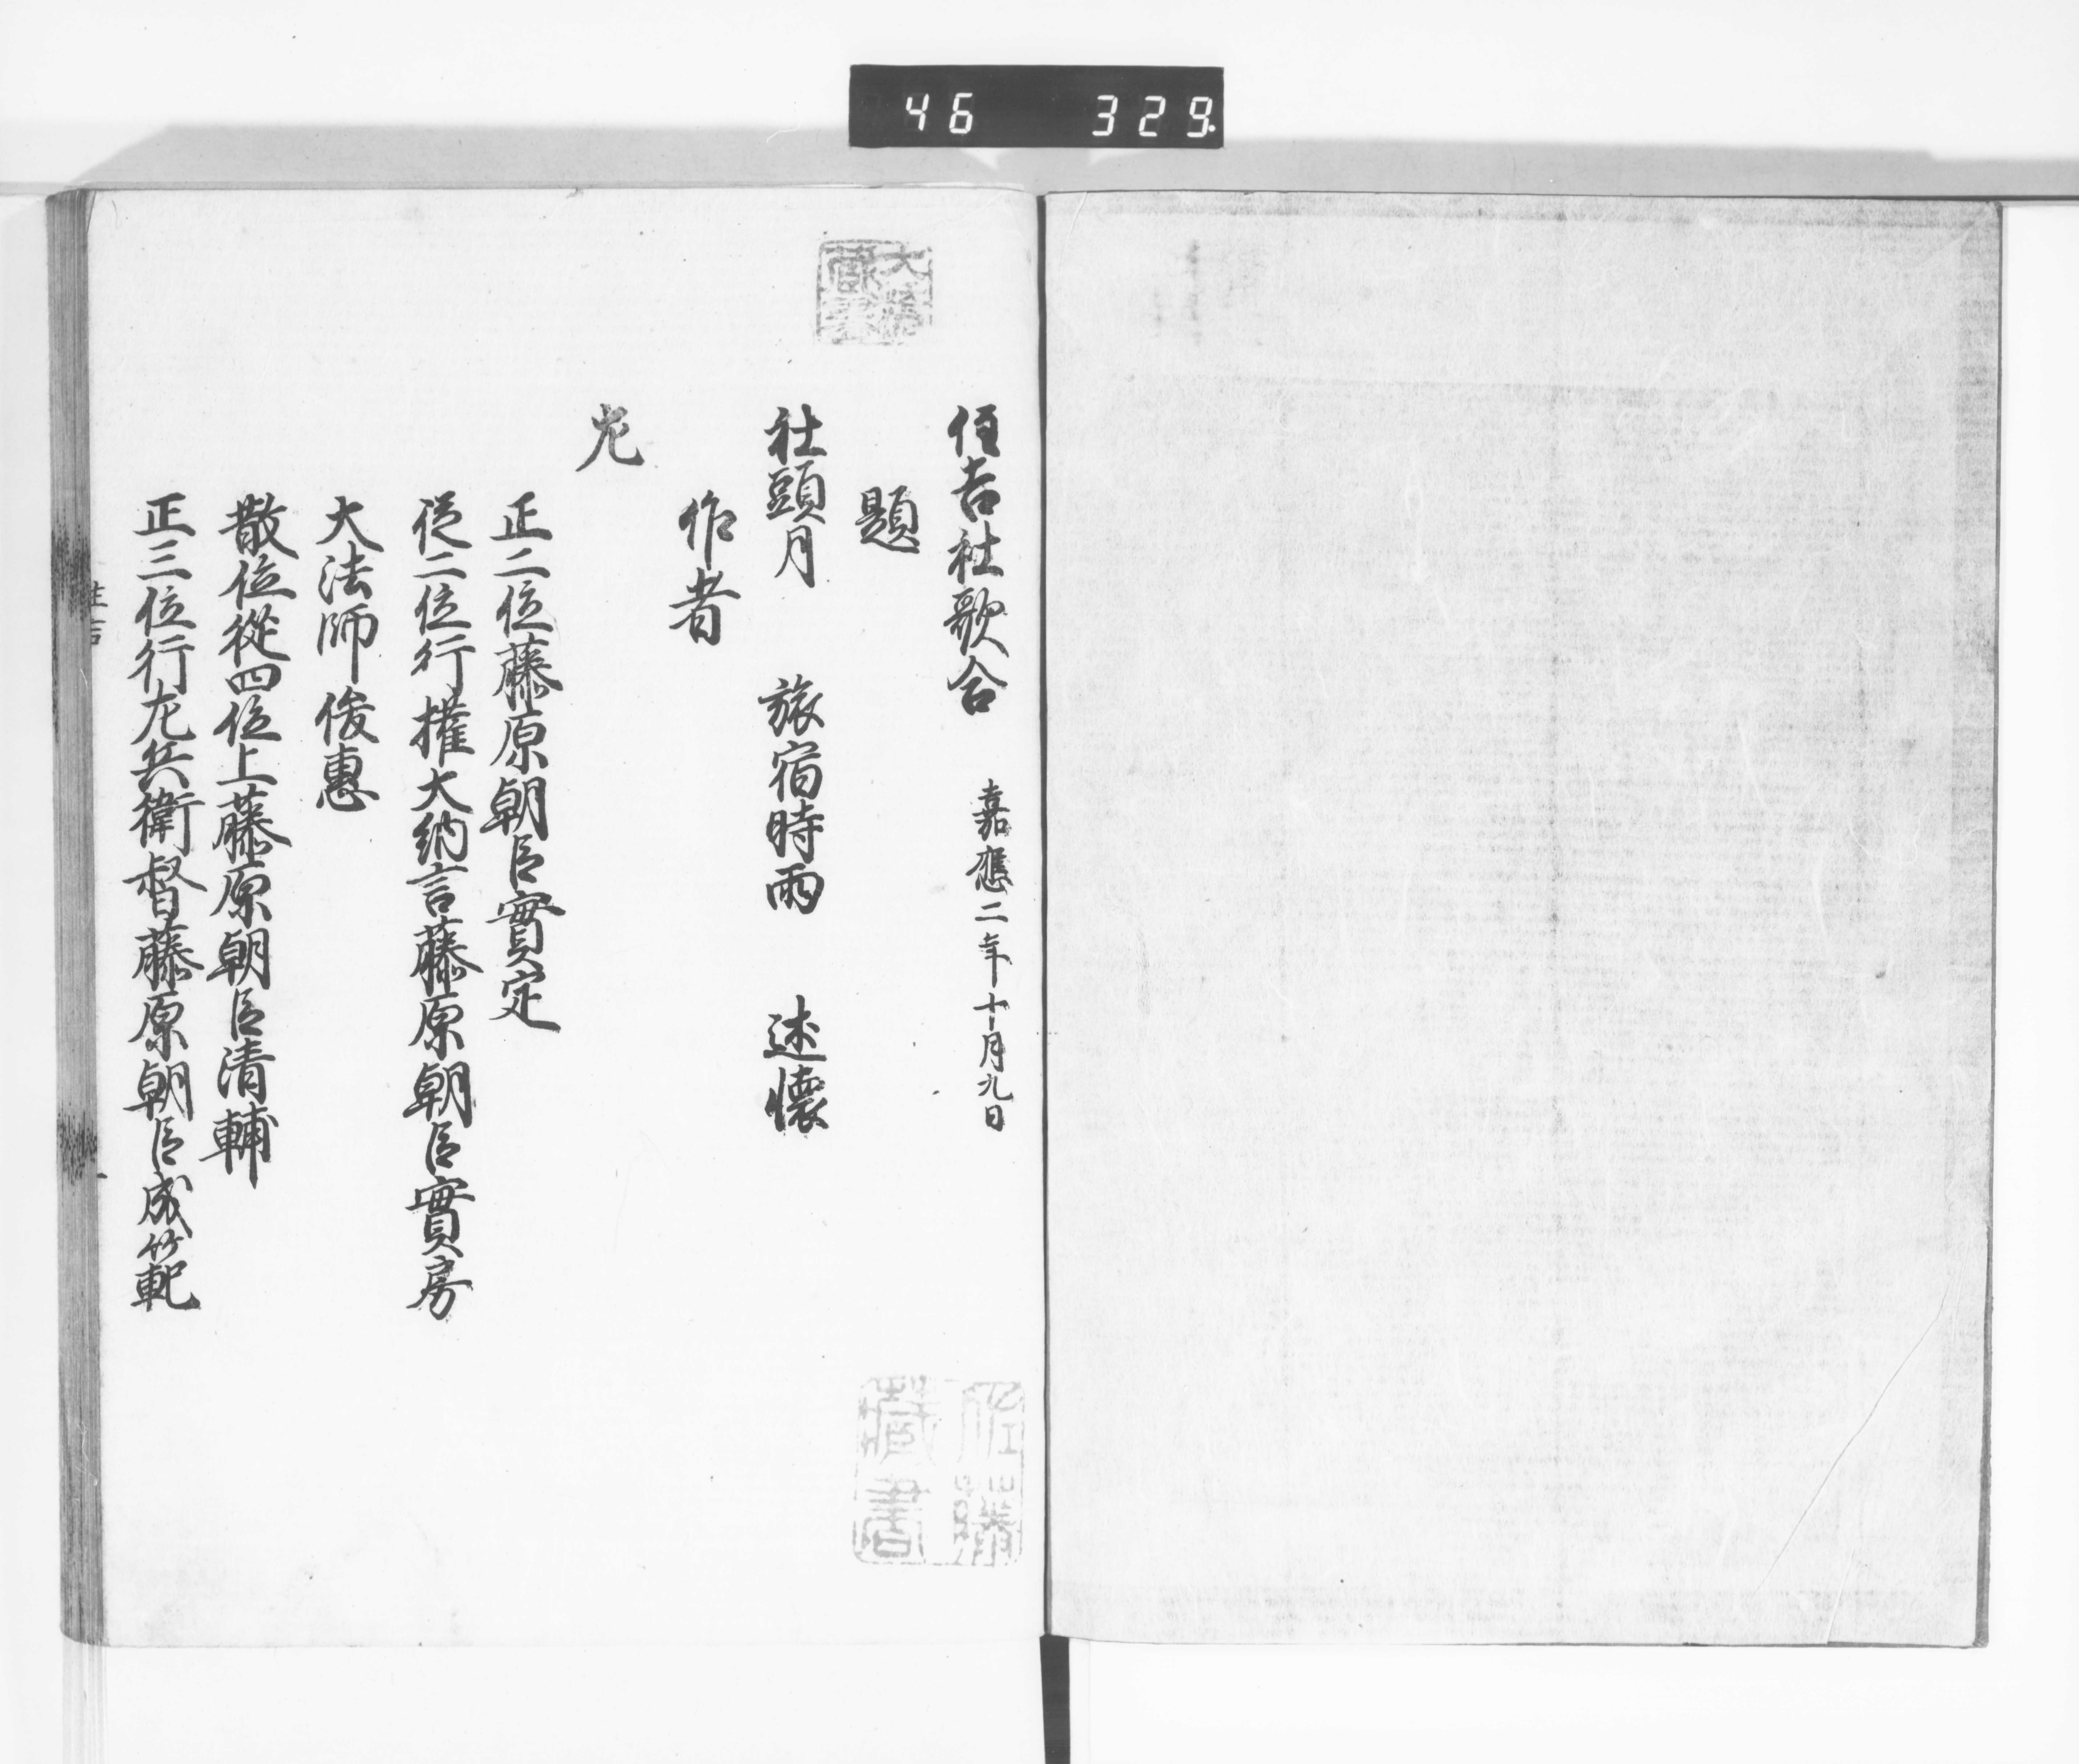 46 329
住吉社歌合 嘉應二年十月九日
題
社頭月 旅宿時雨 述懷
作者
左
正二位藤原朝臣實定
從二位行權大納言藤原朝臣實房
大法師俊惠
散位從四位上藤原朝臣清輔
正三位行左兵衛督藤原朝臣成範
佐藤藏書
住吉
一